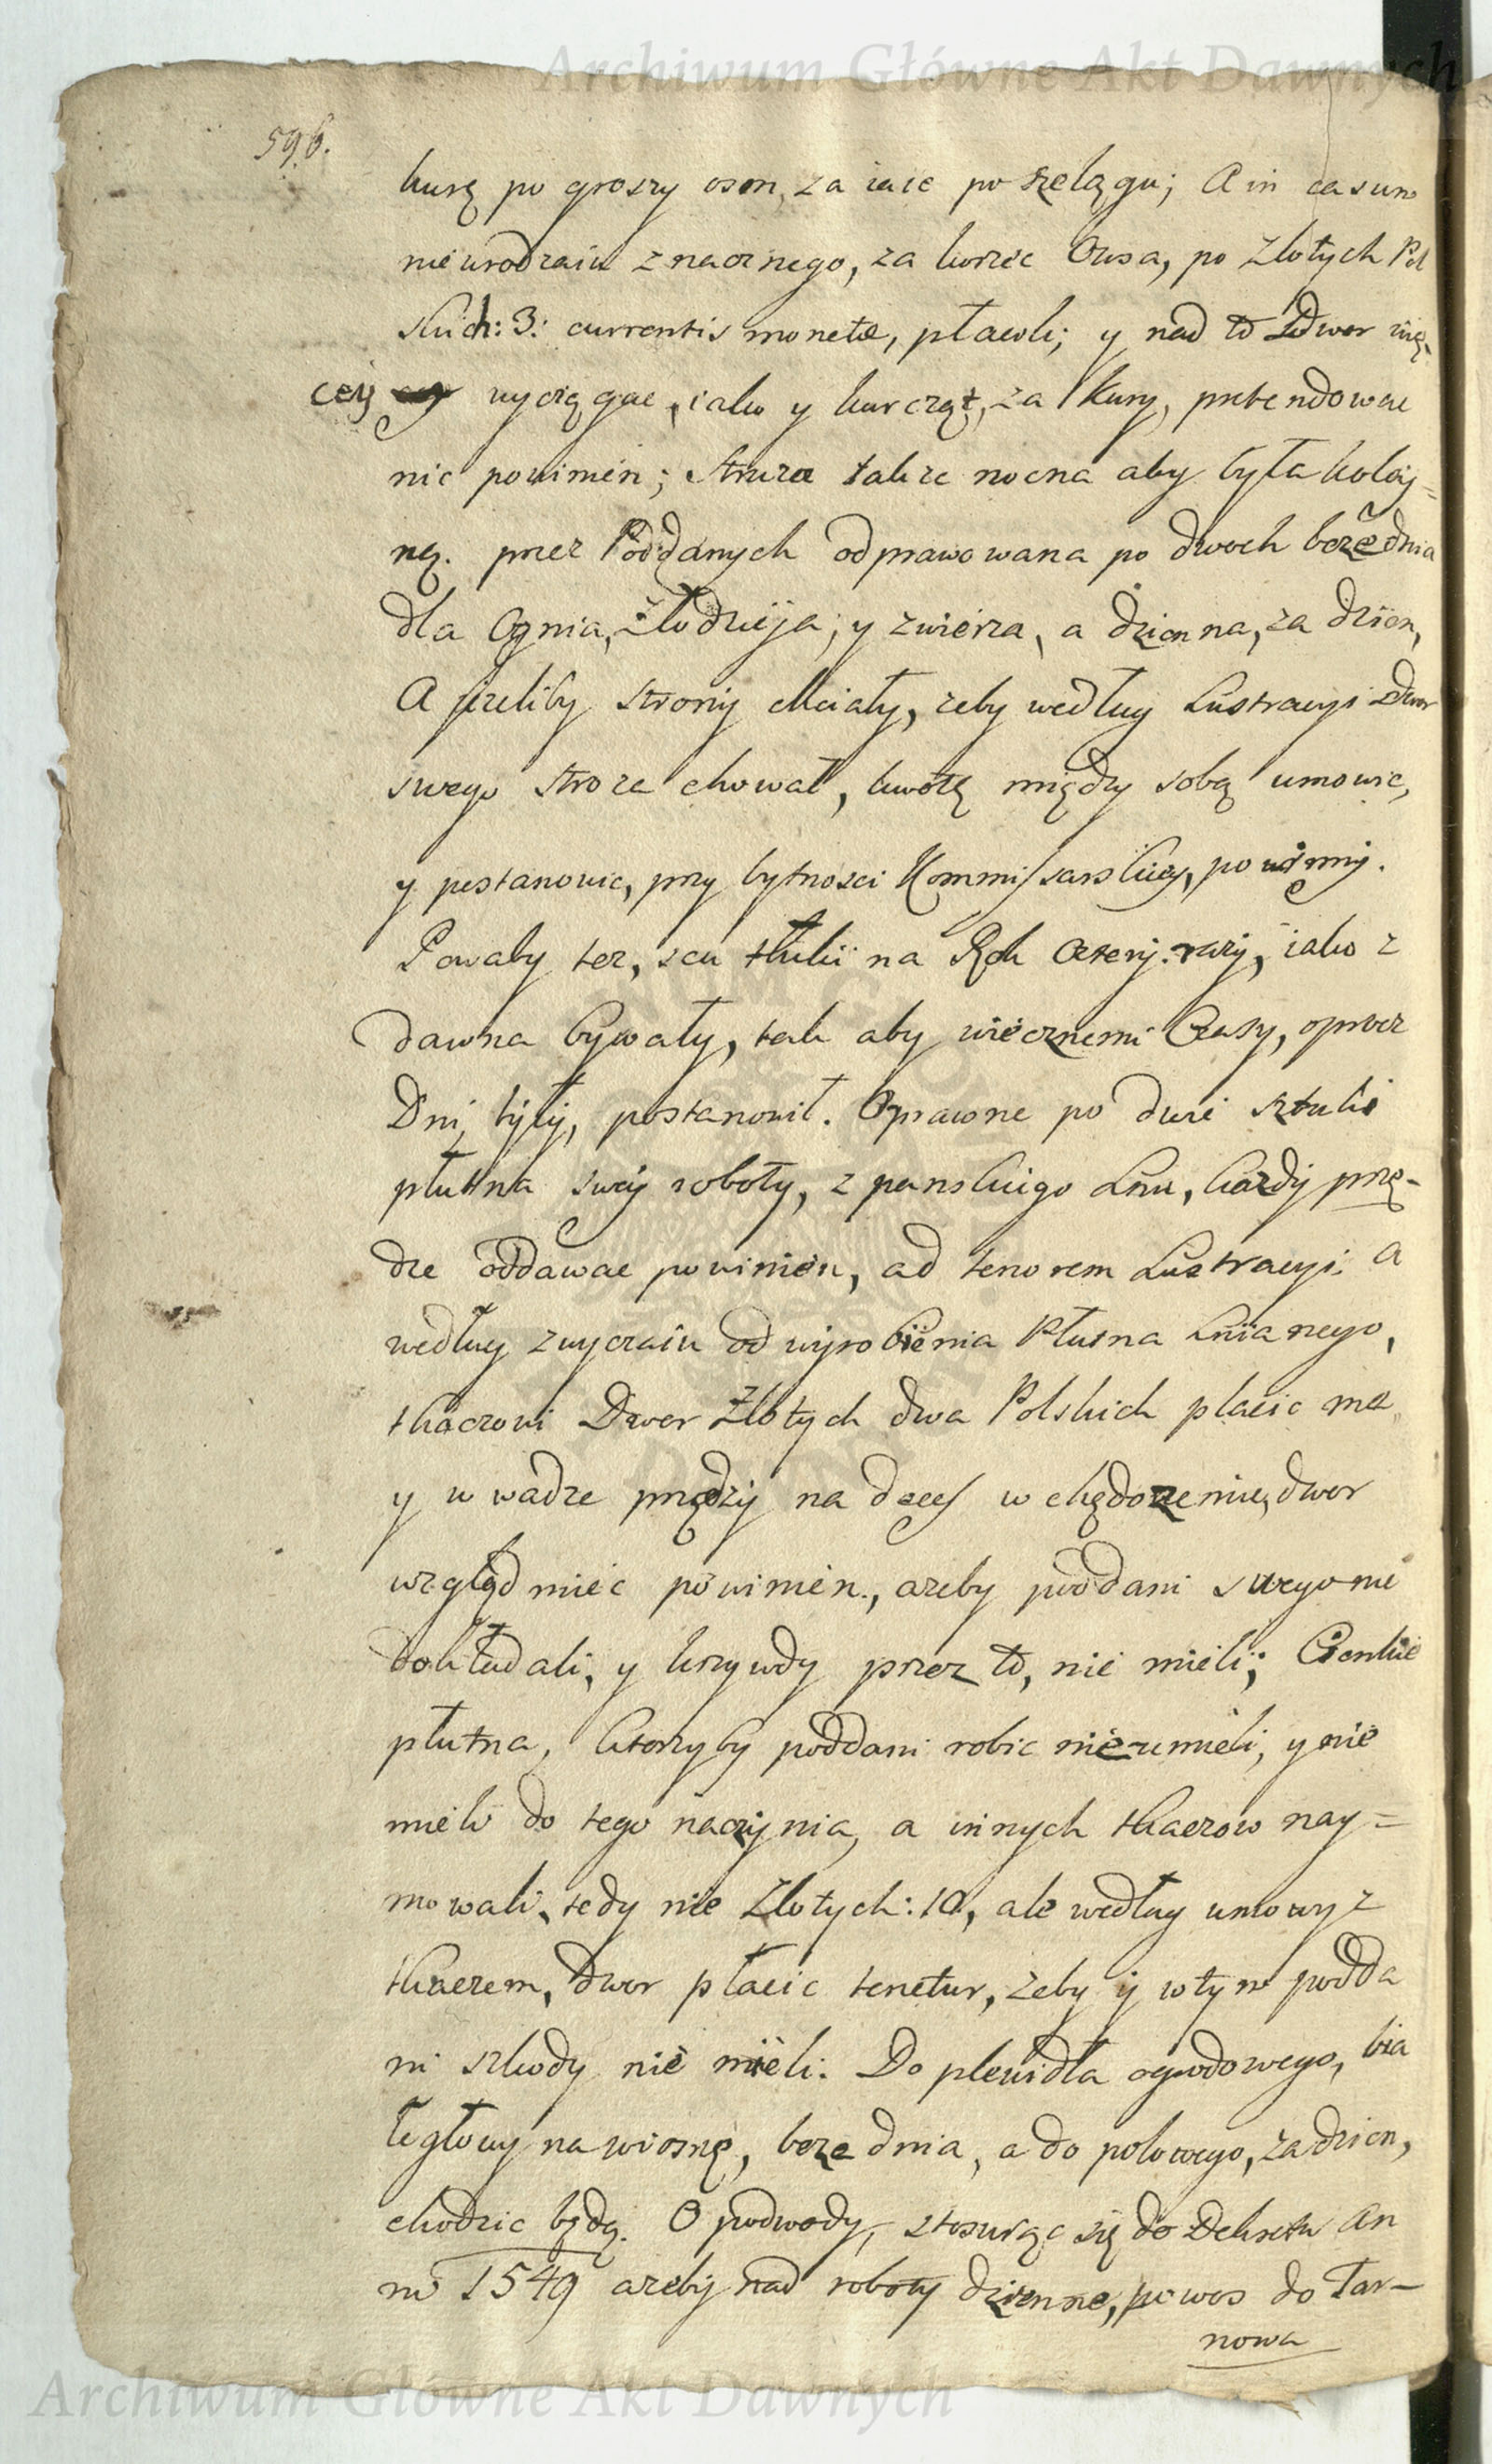 Archiwum Główne Akt Dawnych
596.
kurę po groszy osm, za iaie po szelągu; A in casum
nieurodzaiu znacznego, za korzec Owsa, po Złotych Pol
skich: 3: currentis monetæ, płacili; y nad to Dwor wię-
cey wyciągac, iako y kurcząt, za kury, pretendowac
nie powinien; Struza takze nocna aby była koley=
ną. przez Poddanych odprawowana po dwoch bezednia
dla Ognia, Złodzieja; y zwierza, a dzienna, za dzien,
A jezeliby strony chciały, zeby według Lustracyi Dwor
swego stroza chował, kwotę między sobą umowic,
y postanowic, przy bytnosci Kommissarskiey, powinny.
Powaby tez, seu tłuki na Rok cztery razy, iako z
dawna bywały, tak aby wiecznemi Czasy, oprocz
Dni były, postanowił. Oprawne po dwie sztuki
płutna swey roboty, z panskiego Lnu, kazdy przę-
dze oddawac powinien, ad tenorem Lustracyi. a
według zwyczaiu od wyrobienia Płutna Lnianego,
tkaczowi Dwor Złotych dwa Polskich płacic ma
y w wadze przędzy na w chędozenie, dwor
wzgląd miec powinien, azeby poddani swego nie
dokładali, y krzywdy przez to, nie mieli; Cienkie
płutna, ktorzyby poddani robic nie umieli, y nie
mieli do tego naczynia, a innych tkaczow nay=
mowali, tedy nie Złotych: 10, ale według umowy z
tkaczem, dwor płacic tenetur, zeby y w tym podda
ni szkody nie mieli. Do plewidła ogrodowego, bia
łegłowy na wiosnę, beze dnia, a do polowego, za dzien,
chodzic będą. O podwody, stosuiąc się do Dekretu An
ni 1549 azeby nad roboty dzienne, powoz do Tar-
nowa
Archiwum Główne Akt Dawnych